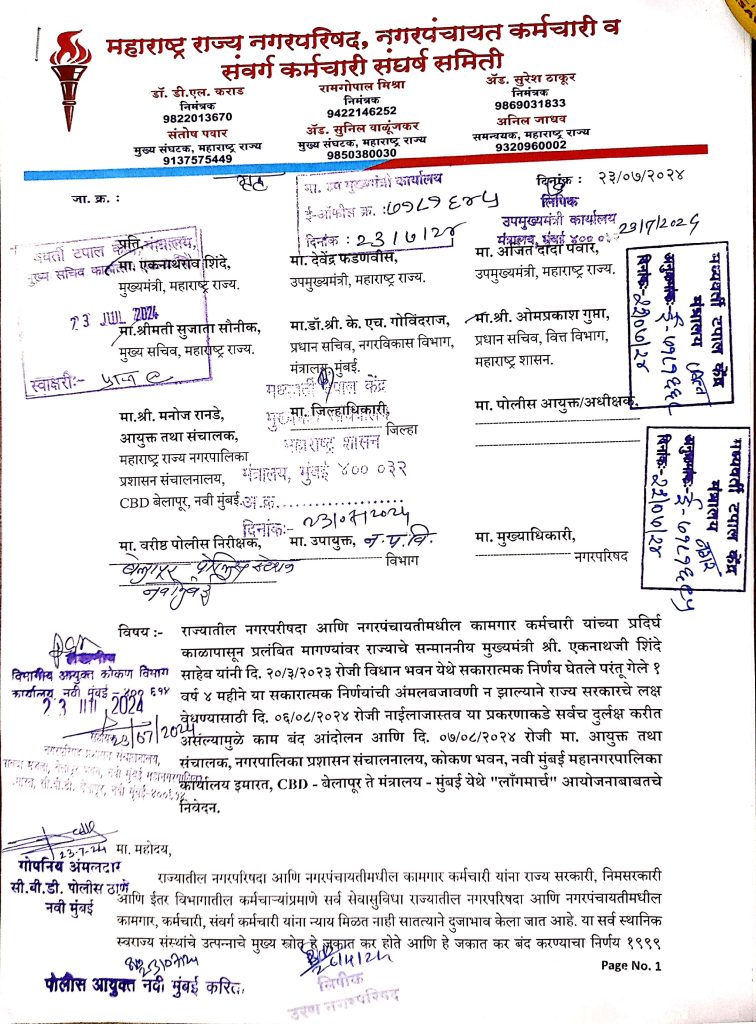 महाराष्ट्र राज्य नगरपरिषद, नगरपंचायत कर्मचारी व
संवर्ग कर्मचारी संघर्ष समिती
डॉ. डी.एल. कराड
निमंत्रक
9822013670
संतोष पवार
मुख्य संघटक, महाराष्ट्र राज्य
9137575449
रामगोपाल मिश्रा
निमंत्रक
9422146252
ॲड. सुनिल वाळूंजकर
मुख्य संघटक, महाराष्ट्र राज्य
9850380030
ॲड. सुरेश ठाकूर
निमंत्रक
9869031833
अनिल जाधव
समन्वयक, महाराष्ट्र राज्य
9320960002
जा. क्र. :
दिनांक : २३/०७/२०२४
मा. उप मुख्यमंत्री कार्यालय
ई-ऑफीस क्र. : ७१८५६४५
दिनांक : 23/7/24
लिपिक
उपमुख्यमंत्री कार्यालय
मंत्रालय, मुंबई ४०० ०३२
23/7/2024
प्रति,
मा. एकनाथराव शिंदे,
मुख्यमंत्री, महाराष्ट्र राज्य.
मा. देवेंद्र फडणवीस,
उपमुख्यमंत्री, महाराष्ट्र राज्य.
मा. अजित दादा पवार,
उपमुख्यमंत्री, महाराष्ट्र राज्य.
23 JUL 2024
स्वाक्षरी:-
मा.श्रीमती सुजाता सौनीक,
मुख्य सचिव, महाराष्ट्र राज्य.
मा.डॉ.श्री. के. एच. गोविंदराज,
प्रधान सचिव, नगरविकास विभाग,
मंत्रालय, मुंबई.
मा.श्री. ओमप्रकाश गुप्ता,
प्रधान सचिव, वित्त विभाग,
महाराष्ट्र शासन.
मध्यवर्ती टपाल केंद्र
मंत्रालय
अनुक्रमांक:-
दिनांक:-
मा.श्री. मनोज रानडे,
आयुक्त तथा संचालक,
महाराष्ट्र राज्य नगरपालिका
प्रशासन संचालनालय,
CBD बेलापूर, नवी मुंबई.
मा. जिल्हाधिकारी,
जिल्हा
मा. पोलीस आयुक्त/अधीक्षक,
मध्यवर्ती टपाल केंद्र
महाराष्ट्र शासन
मंत्रालय, मुंबई ४०० ०३२
अ.क्र.
दिनांक:- 23/07/2024
मध्यवर्ती टपाल केंद्र
मंत्रालय
अनुक्रमांक:-
दिनांक:-
मा. वरीष्ठ पोलीस निरीक्षक,
बेलापूर पोलिस स्टेशन
नवी मुंबई
मा. उपायुक्त, न.प.वि.
विभाग
मा. मुख्याधिकारी,
नगरपरिषद
विषय :- राज्यातील नगरपरीषदा आणि नगरपंचायतीमधील कामगार कर्मचारी यांच्या प्रदिर्घ
काळापासून प्रलंबित मागण्यांवर राज्याचे सन्माननीय मुख्यमंत्री श्री. एकनाथजी शिंदे
साहेब यांनी दि. २०/३/२०२३ रोजी विधान भवन येथे सकारात्मक निर्णय घेतले परंतु गेले १
वर्ष ४ महीने या सकारात्मक निर्णयांची अंमलबजावणी न झाल्याने राज्य सरकारचे लक्ष
वेधण्यासाठी दि. ०६/०८/२०२४ रोजी नाईलाजास्तव या प्रकरणाकडे सर्वच दुर्लक्ष करीत
असल्यामुळे काम बंद आंदोलन आणि दि. ०७/०८/२०२४ रोजी मा. आयुक्त तथा
संचालक, नगरपालिका प्रशासन संचालनालय, कोकण भवन, नवी मुंबई महानगरपालिका
कार्यालय इमारत, CBD - बेलापूर ते मंत्रालय - मुंबई येथे "लाँगमार्च" आयोजनाबाबतचे
निवेदन.
विभागीय आयुक्त कोकण विभाग
कार्यालय, नवी मुंबई - ४०० ६१४
23/07/2024
23-7-24
गोपनिय अंमलदार
सी.बी.डी. पोलीस ठाणे
नवी मुंबई
मा. महोदय,
राज्यातील नगरपरिषदा आणि नगरपंचायतीमधील कामगार कर्मचारी यांना राज्य सरकारी, निमसरकारी
आणि ईतर विभागातील कर्मचाऱ्यांप्रमाणे सर्व सेवासुविधा राज्यातील नगरपरिषदा आणि नगरपंचायतीमधील
कामगार, कर्मचारी, संवर्ग कर्मचारी यांना न्याय मिळत नाही सातत्याने दुजाभाव केला जात आहे. या सर्व स्थानिक
स्वराज्य संस्थांचे उत्पन्नाचे मुख्य स्रोत हे जकात कर होते आणि हे जकात कर बंद करण्याचा निर्णय १९९९
Page No. 1
पोलीस आयुक्त नवी मुंबई करिता
लिपीक
उरण नगरपरिषद